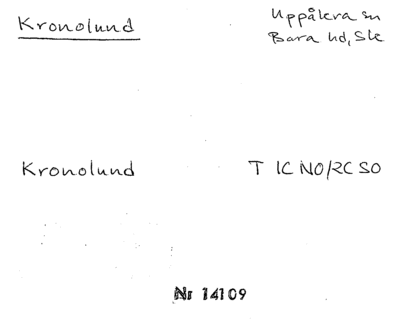 Kronolund
Uppåkra sn
Bara hd, Sk
Kronolund
T 1C NO/2C SO
Nr 14109